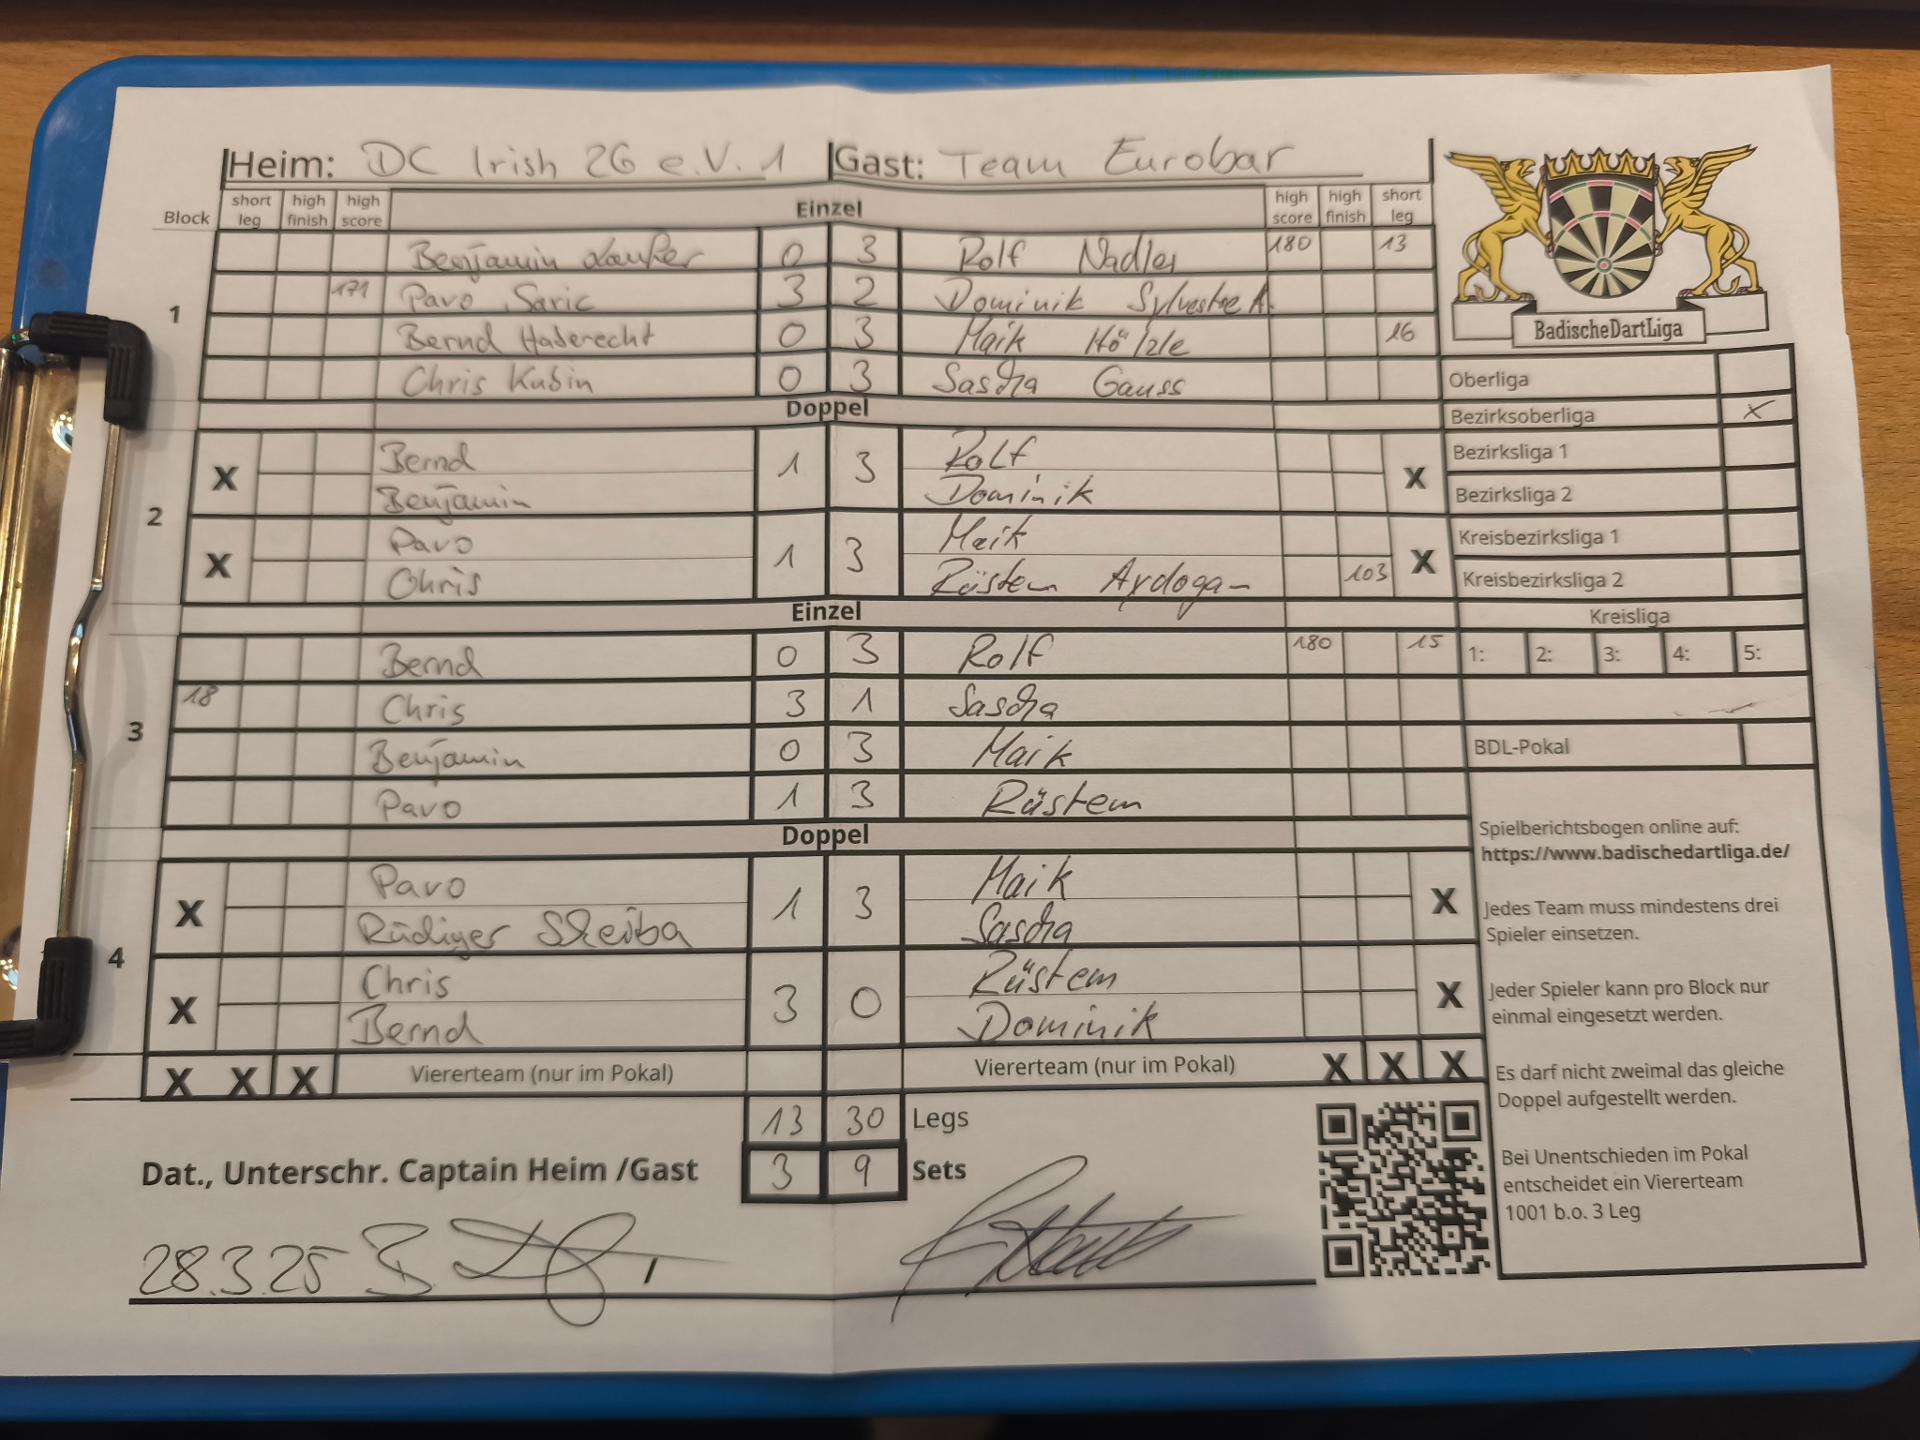 Heim: DC Irish 26 e.V. 1 Gast: Team Eurobar
Block short leg high finish high score Einzel high score high finish short leg
1
Benjamin 0 3 Rolf Nadler 180 13
171 Pavo Saric 3 2 Dominik Sylvestre A.
Bernd Haderecht 0 3 Maik Hölzle 16
Chris Kubin 0 3 Sascha Gauss
Doppel
2
X Bernd 1 3 Rolf X
Benjamin Dominik
X Pavo 1 3 Maik X
Chris Rüstem Aydogan 103
Einzel
3
Bernd 0 3 Rolf 180 15
18 Chris 3 1 Sascha
Benjamin 0 3 Maik
Pavo 1 3 Rüstem
Doppel
4
X Pavo 1 3 Maik X
Rüdiger Sascha
X Chris 3 0 Rüstem X
Bernd Dominik
X X X Viererteam (nur im Pokal) Viererteam (nur im Pokal) X X X
13 30 Legs
Dat., Unterschr. Captain Heim /Gast 3 9 Sets
28.3.25
BadischeDartLiga
Oberliga
Bezirksoberliga X
Bezirksliga 1
Bezirksliga 2
Kreisbezirksliga 1
Kreisbezirksliga 2
Kreisliga
1: 2: 3: 4: 5:
BDL-Pokal
Spielberichtsbogen online auf:
https://www.badischedartliga.de/
Jedes Team muss mindestens drei
Spieler einsetzen.
Jeder Spieler kann pro Block nur
einmal eingesetzt werden.
Es darf nicht zweimal das gleiche
Doppel aufgestellt werden.
Bei Unentschieden im Pokal
entscheidet ein Viererteam
1001 b.o. 3 Leg